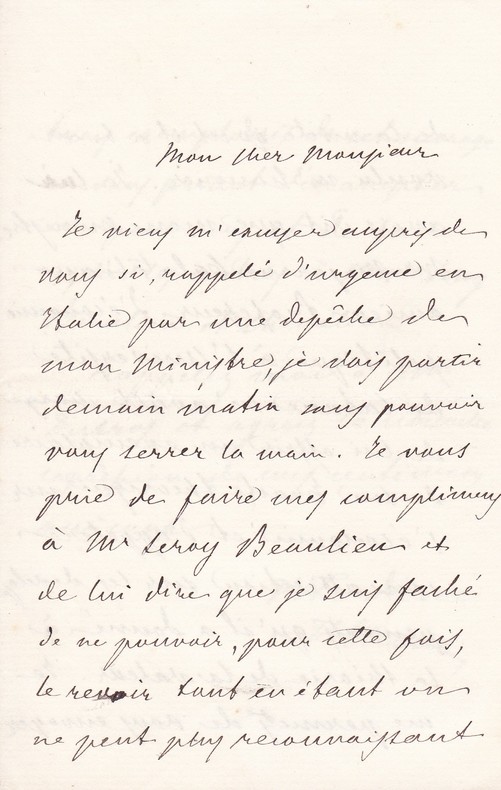 Mon cher Monsieur
Je viens m'excuser auprès de
vous si, rappelé d'urgence en
Italie par une depêche de
mon Ministre, je dois partir
demain matin sans pouvoir
vous serrer la main. Je vous
prie de faire mes complimens
à Mr Leroy Beaulieu et
de lui dire que je suis faché
de ne pouvoir, pour cette fois,
le revoir tout en étant on
ne peut plus reconnaissant